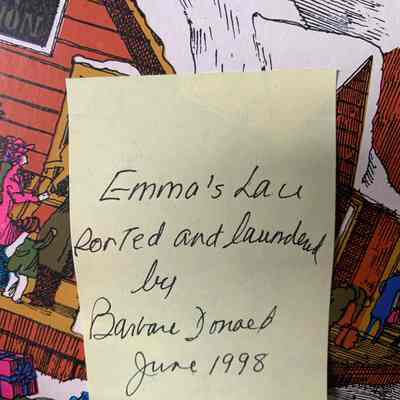 ION
Emma's Lace
Sorted and laundered
by
Barbara Donald
June 1998